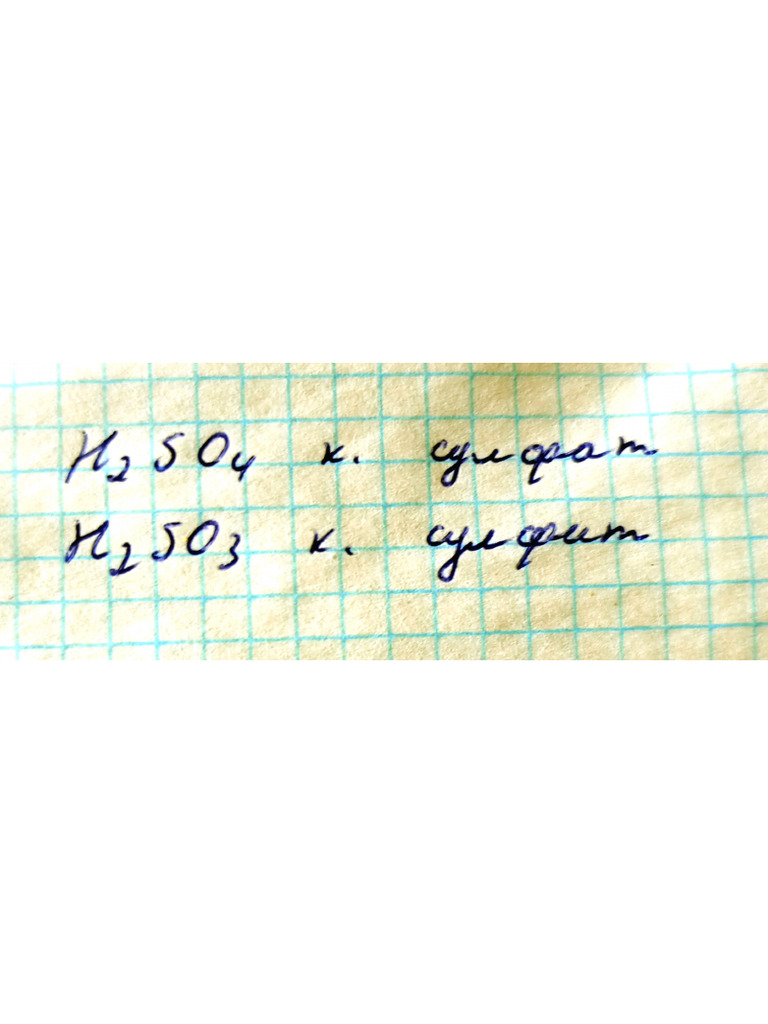 H₂SO₄ к. сулфат
H₂SO₃ к. сулфит